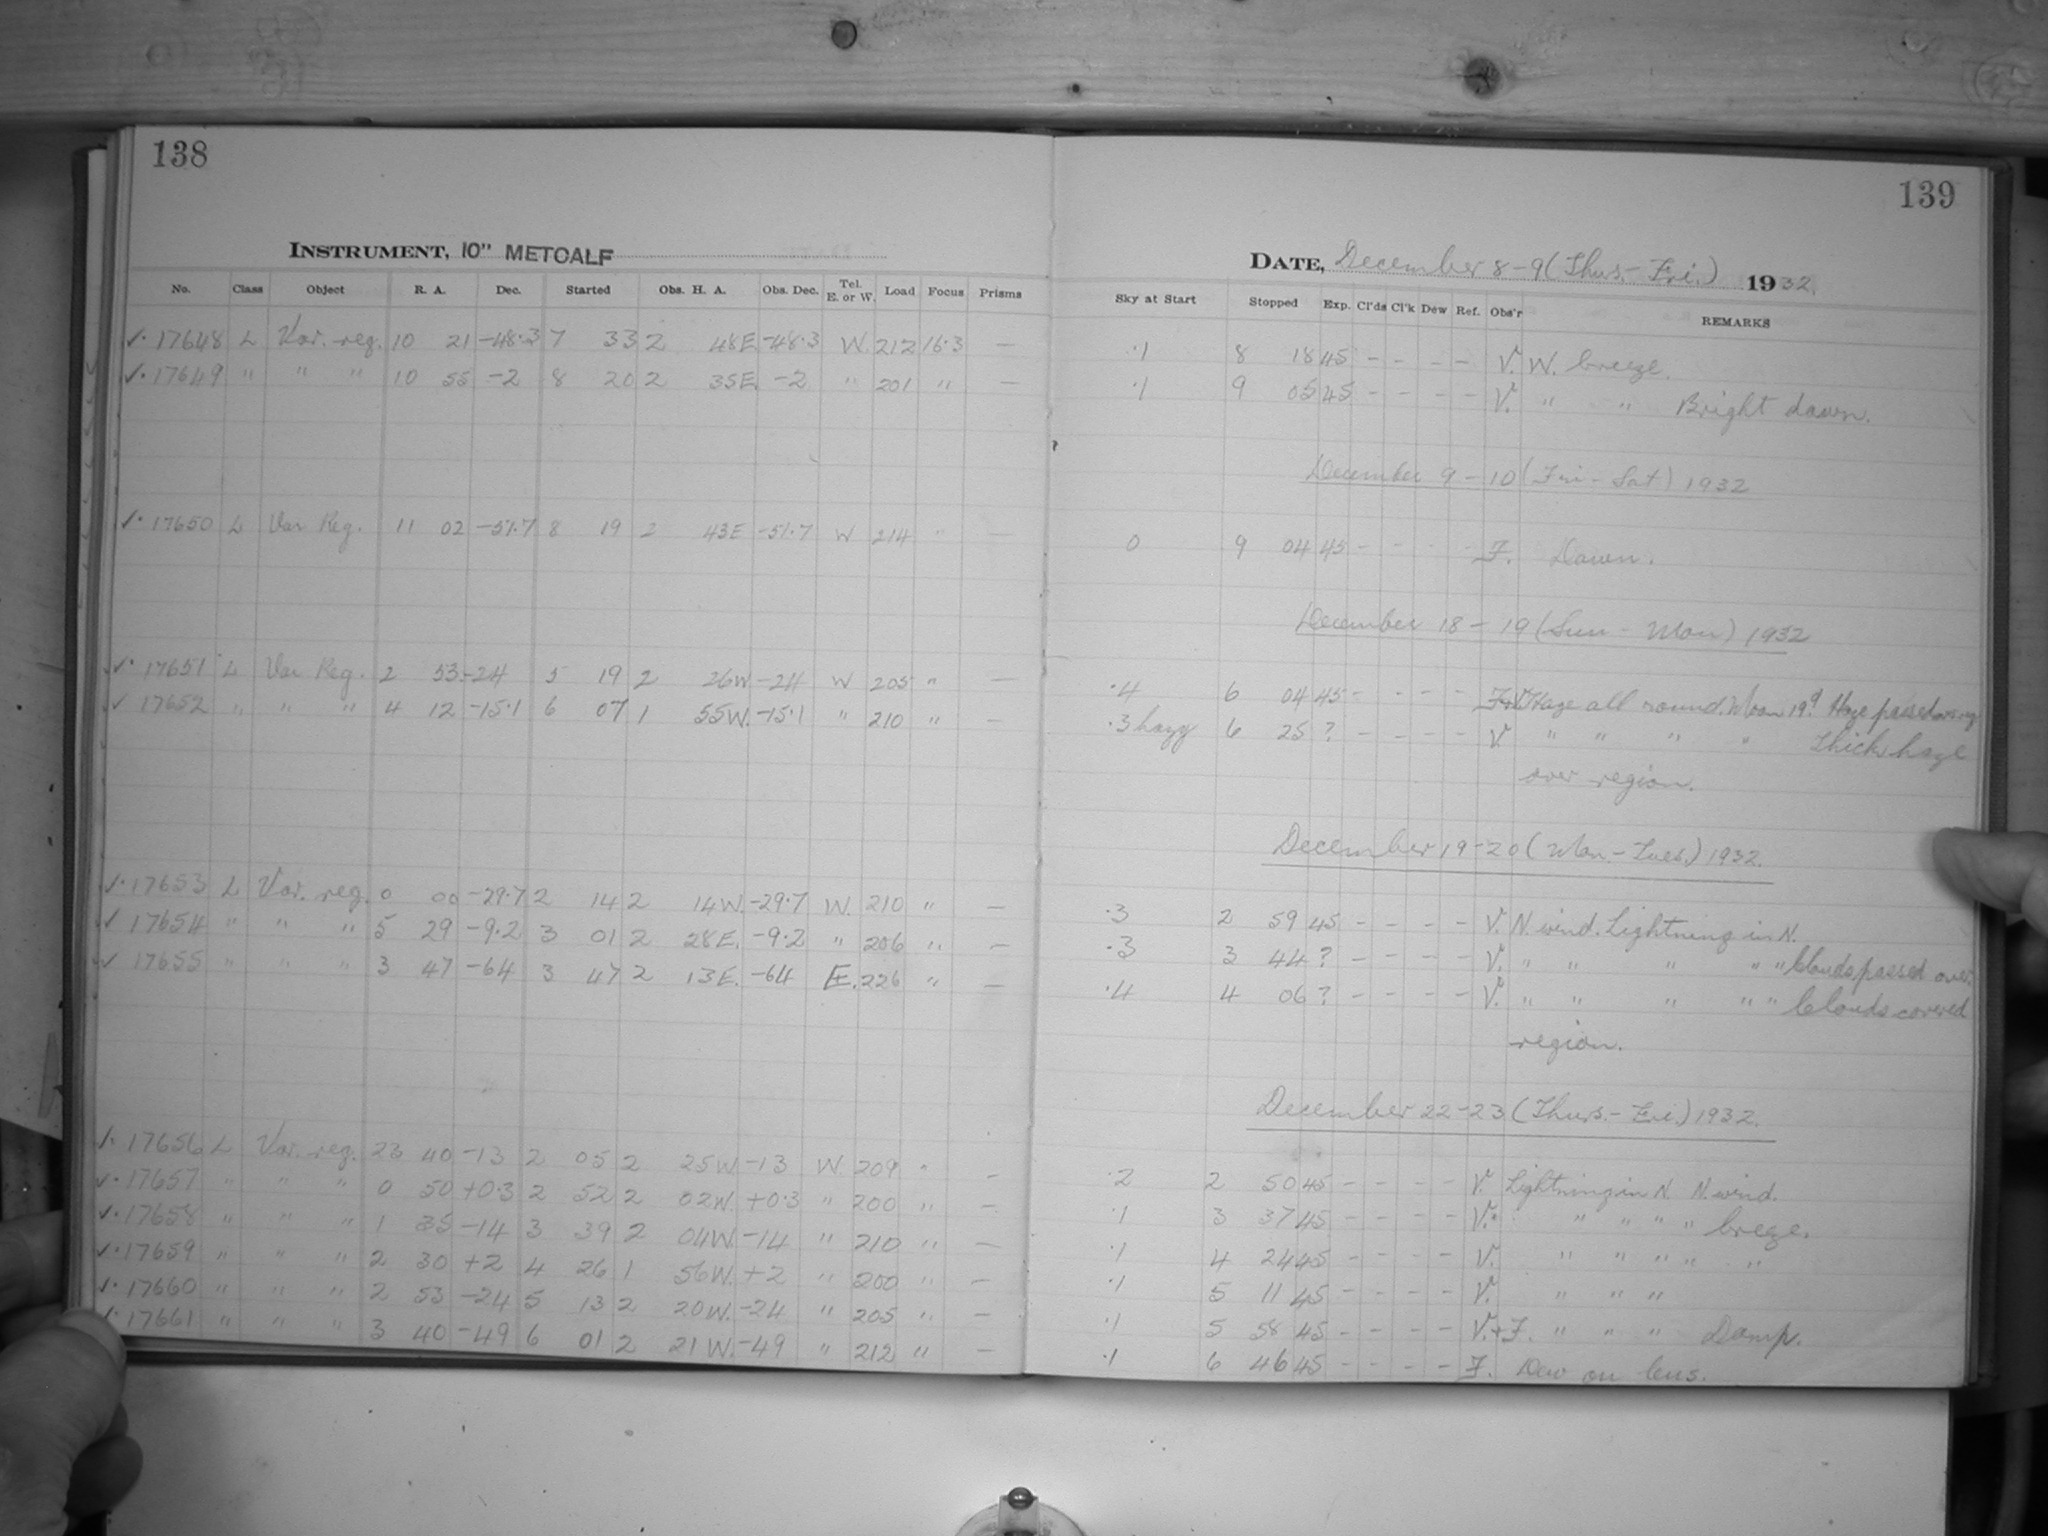 138
INSTRUMENT, 10" METCALF
No. Class Object R. A. Dec. Started Obs. H. A. Obs. Dec. Tel. E. or W. Load Focus Prisms
✓. 17648 L Var. reg. 10 21 -48.3 7 33 2 48E -48.3 W. 212 16.3 —
✓. 17649 " " " 10 55 -2 8 20 2 35E. -2 " 201 " —
✓. 17650 L Var Reg. 11 02 -51.7 8 19 2 43E -51.7 W 214 " —
✓. 17651 L Var Reg. 2 53 -24 5 19 2 26W -24 W 205 " —
✓ 17652 " " " 4 12 -15.1 6 07 1 55W. -15.1 " 210 " —
✓. 17653 L Var. reg. 0 00 -29.7 2 14 2 14W. -29.7 W. 210 " —
✓ 17654 " " " 5 29 -9.2 3 01 2 28E. -9.2 " 206 " —
✓ 17655 " " " 3 47 -64 3 47 2 13E. -64 E. 226 " —
✓. 17656 L Var. reg. 23 40 -13 2 05 2 25W -13 W. 209 " —
✓. 17657 " " " 0 50 +0.3 2 52 2 02W. +0.3 " 200 " —
✓. 17658 " " " 1 35 -14 3 39 2 04W -14 " 210 " —
✓. 17659 " " " 2 30 +2 4 26 1 56W. +2 " 200 " —
✓. 17660 " " " 2 53 -24 5 13 2 20W. -24 " 205 " —
✓. 17661 " " " 3 40 -49 6 01 2 21W. -49 " 212 " —
139
DATE, December 8-9 (Thurs.- Fri.) 1932.
Sky at Start Stopped Exp. Cl'ds Cl'k Dew Ref. Obs'r REMARKS
.1 8 18 45 - - - - V. W. breeze.
.1 9 05 45 - - - - V. " " Bright dawn.
December 9-10 (Fri - Sat) 1932
0 9 04 45 - - - - F. Dawn.
December 18-19 (Sun - Mon) 1932
.4 6 04 45 - - - - F+V Haze all round. Moon 19d. Haze passed over reg
.3 hazy 6 25 ? - - - - V. " " " " Thick haze
over region.
December 19-20 (Mon.- Tues.) 1932.
.3 2 59 45 - - - - V. N. wind. Lightning in N.
.3 3 44 ? - - - - V. " " " " " Clouds passed over.
.4 4 06 ? - - - - V. " " " " " Clouds covered
region.
December 22-23 (Thurs.- Fri.) 1932.
.2 2 50 45 - - - - V. Lightning in N. N. wind.
.1 3 37 45 - - - - V. " " " " breeze.
.1 4 24 45 - - - - V. " " " " "
.1 5 11 45 - - - - V. " " "
.1 5 58 45 - - - - V.+F. " " " Damp.
.1 6 46 45 - - - - F. Dew on lens.